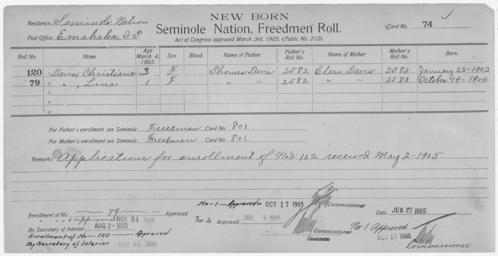 NEW BORN
Residence Seminole Nation
Seminole Nation, Freedmen Roll.
Card No. 74
Post Office, Emahaka, I.T.
Act of Congress approved March 3rd, 1905, (Public No. 212).
Roll No. Name Age March 4, 1905. Sex Blood. Name of Father Father's Roll No. Name of Mother Mother's Roll No. Born.
120 Davis, Christiana 3 F Thomas Davis 2582 Clara Davis 2583 January 23-1902
79 " , Lena 1 F " " 2582 " " 2583 October 19-1904
For Father's enrollment see Seminole Freedman Card No. 801
For Mother's enrollment see Seminole Freedman Card No. 801
Remarks Application for enrollment of No's 1&2 received May 2-1905
No-1-Approved OCT 17 1905
Commissioner
Date JUN 27 1905
Enrollment of No 79 Approved
" " 1 Approved NOV 24 1905
No 2 Approved
Commissioner
No 1 Approved
By Secretary of Interior AUG 2-1905
Enrollment of No-120 Approved
OCT 17 1905
By Secretary of Interior
Commissioner